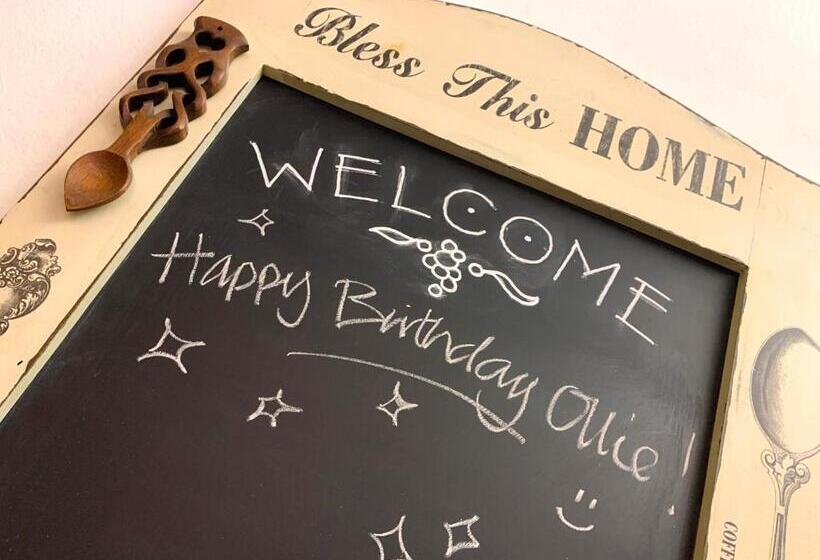 Bless This HOME
WELCOME
Happy Birthday Ollie!